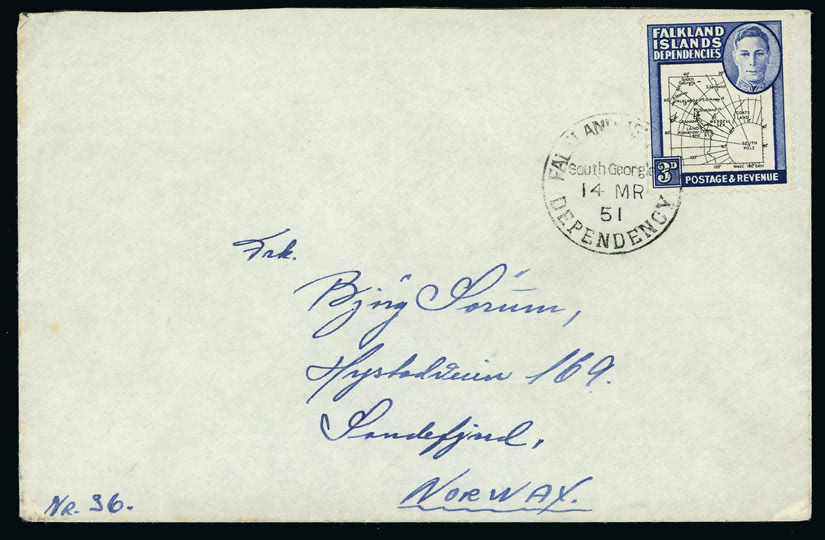 FALKLAND
ISLANDS
DEPENDENCIES
3D
POSTAGE & REVENUE
SOUTH
POLE
FALKLAND IS
South Georgia
14 MR
51
DEPENDENCY
Frk.
Bjürg Sörüm,
169.
Sandefjord,
NORWAY.
Nr. 36.